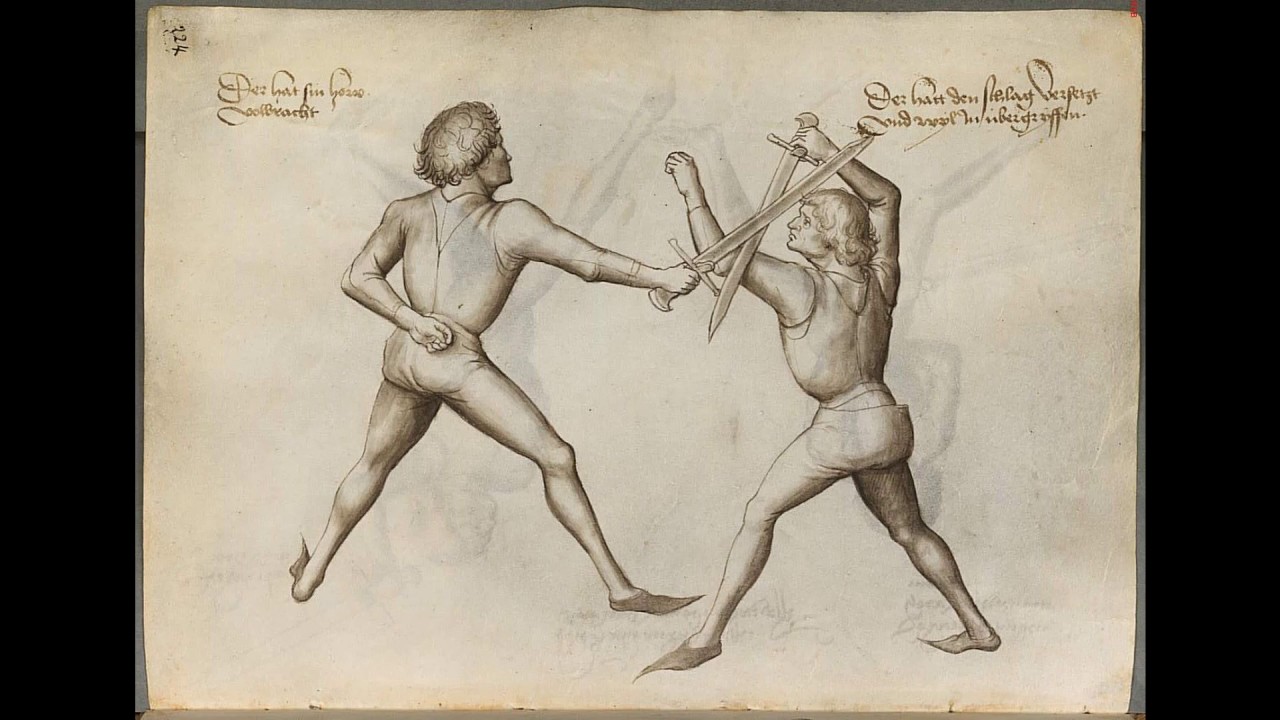 224
Der hat sin how
volbracht
Der hatt den schlag versetzt
vnd wyl in übergryffen